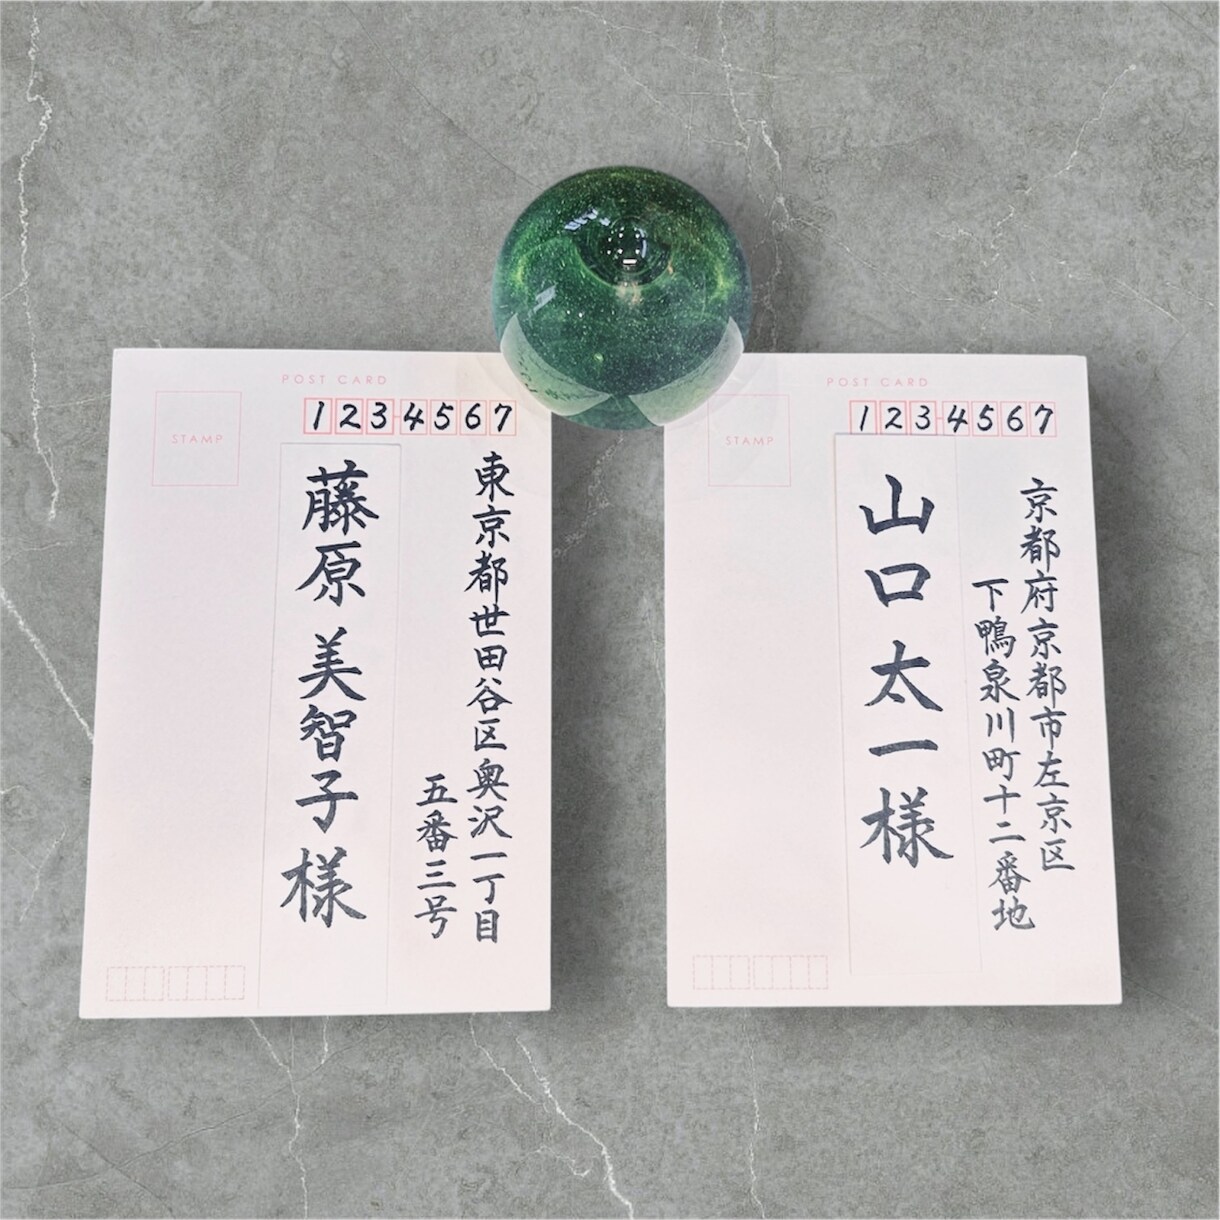 POST CARD
STAMP
123-4567
東京都世田谷区奥沢一丁目
五番三号
藤原 美智子 様
POST CARD
STAMP
123-4567
京都府京都市左京区
下鴨泉川町十二番地
山口 太一 様